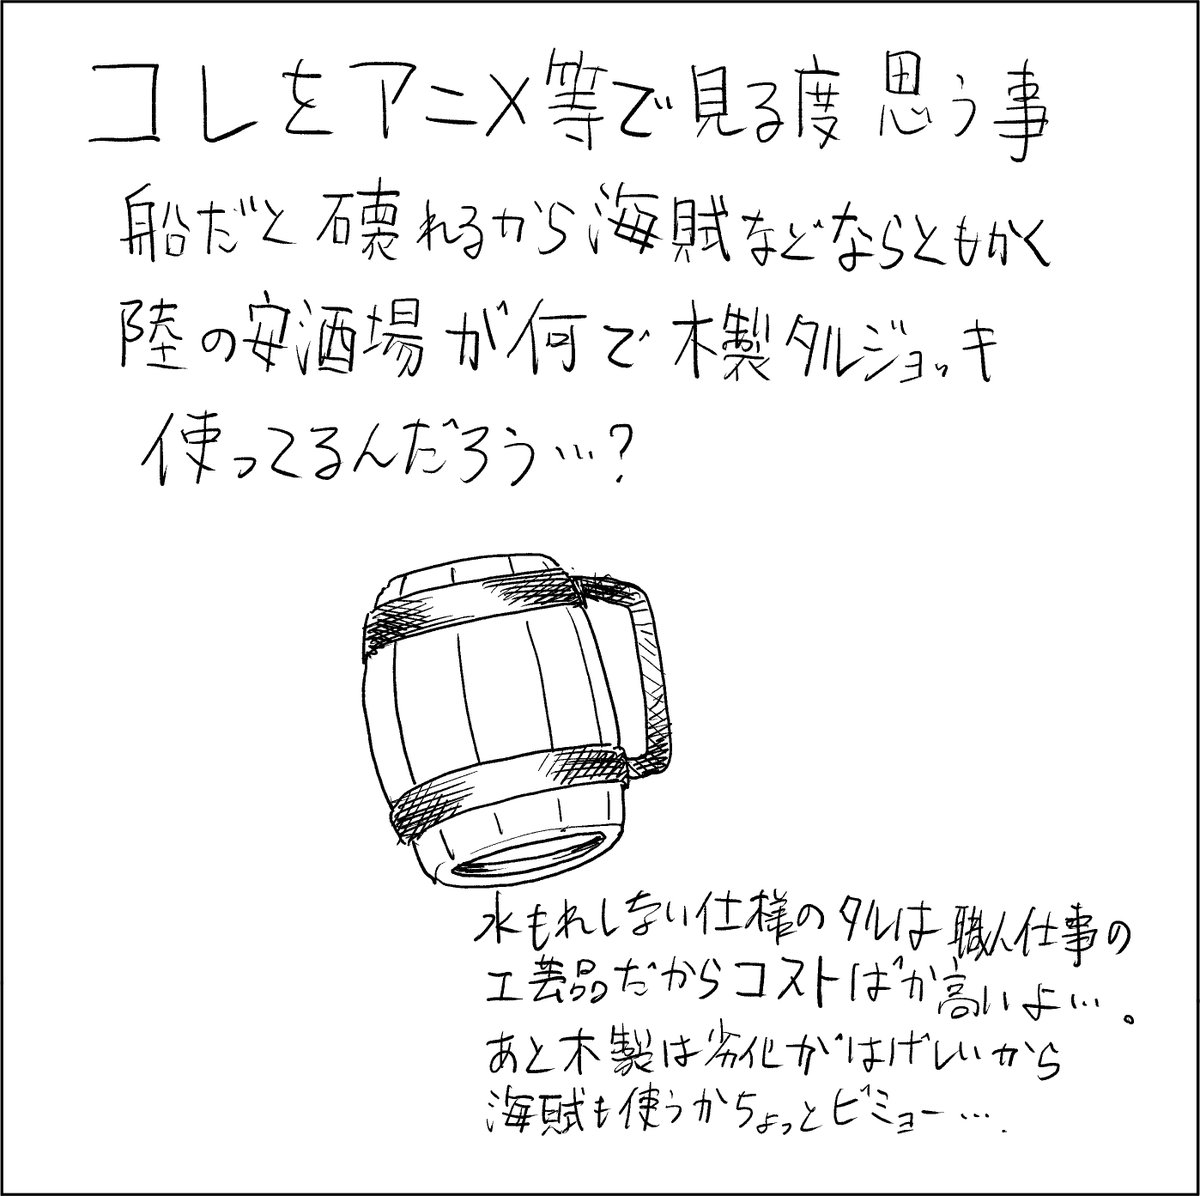 コレをアニメ等で見る度思う事
船だと壊れるから海賊などならともかく
陸の安酒場が何で木製タルジョッキ
使ってるんだろう…?
水もれしない仕様のタルは職人仕事の
工芸品だからコストばか高いよ…。
あと木製は劣化がはげしいから
海賊も使うかちょっとビミョー….